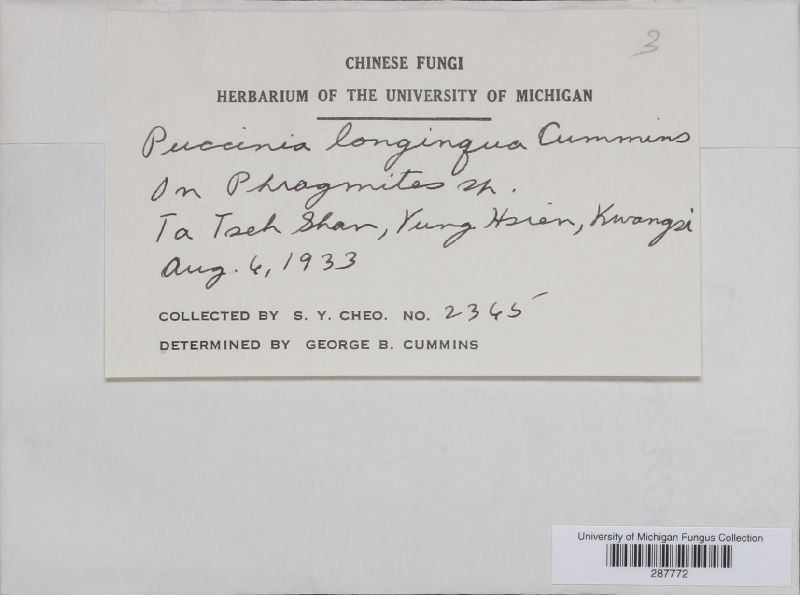 3
CHINESE FUNGI
HERBARIUM OF THE UNIVERSITY OF MICHIGAN
Puccinia longinqua Cummins
On Phragmites sp.
Ta Tseh Shan, Yung Hsien, Kwangsi
Aug. 6, 1933
COLLECTED BY S. Y. CHEO. NO. 2365
DETERMINED BY GEORGE B. CUMMINS
University of Michigan Fungus Collection
287772